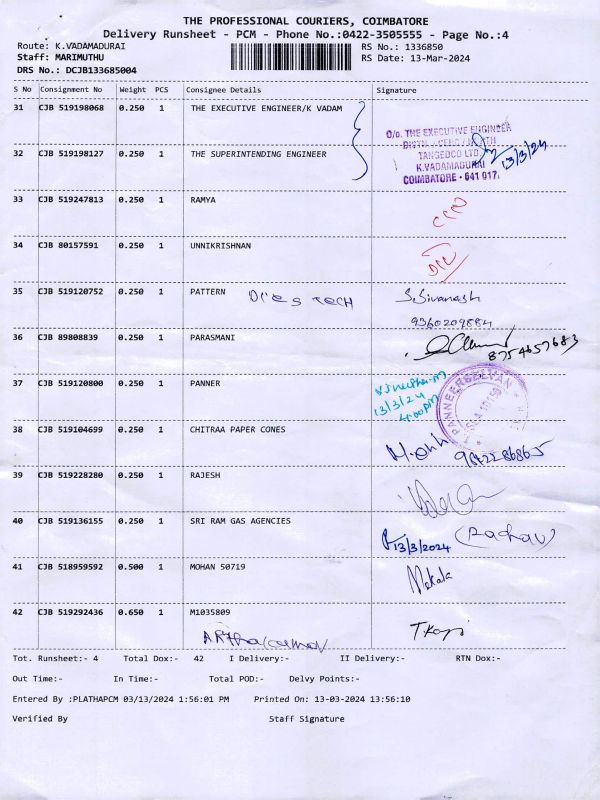 THE PROFESSIONAL COURIERS, COIMBATORE
Delivery Runsheet - PCM - Phone No.:0422-3505555 - Page No.:4
Route: K.VADAMADURAI RS No.: 1336850
Staff: MARIMUTHU RS Date: 13-Mar-2024
DRS No.: DCJB133685004
S No Consignment No Weight PCS Consignee Details Signature
31 CJB 519198068 0.250 1 THE EXECUTIVE ENGINEER/K VADAM
O/o. THE EXECUTIVE ENGINEER
TANGEDCO LTD
K.VADAMADURAI 13/3/24
COIMBATORE - 641 017.
32 CJB 519198127 0.250 1 THE SUPERINTENDING ENGINEER
33 CJB 519247813 0.250 1 RAMYA
34 CJB 80157591 0.250 1 UNNIKRISHNAN
35 CJB 519120752 0.250 1 PATTERN Dies TECH S.Sivanash
9360209884
36 CJB 89808839 0.250 1 PARASMANI 8754657683
37 CJB 519120800 0.250 1 PANNER
13/3/24
4:00pm
PANNEERSELVAN
38 CJB 519104699 0.250 1 CHITRAA PAPER CONES
39 CJB 519228280 0.250 1 RAJESH
40 CJB 519136155 0.250 1 SRI RAM GAS AGENCIES 13/3/2024 (Raghav)
41 CJB 518959592 0.500 1 MOHAN 50719 Mekala
42 CJB 519292436 0.650 1 M1035809
Tot. Runsheet:- 4 Total Dox:- 42 I Delivery:- II Delivery:- RTN Dox:-
Out Time:- In Time:- Total POD:- Delvy Points:-
Entered By :PLATHAPCM 03/13/2024 1:56:01 PM Printed On: 13-03-2024 13:56:10
Verified By Staff Signature